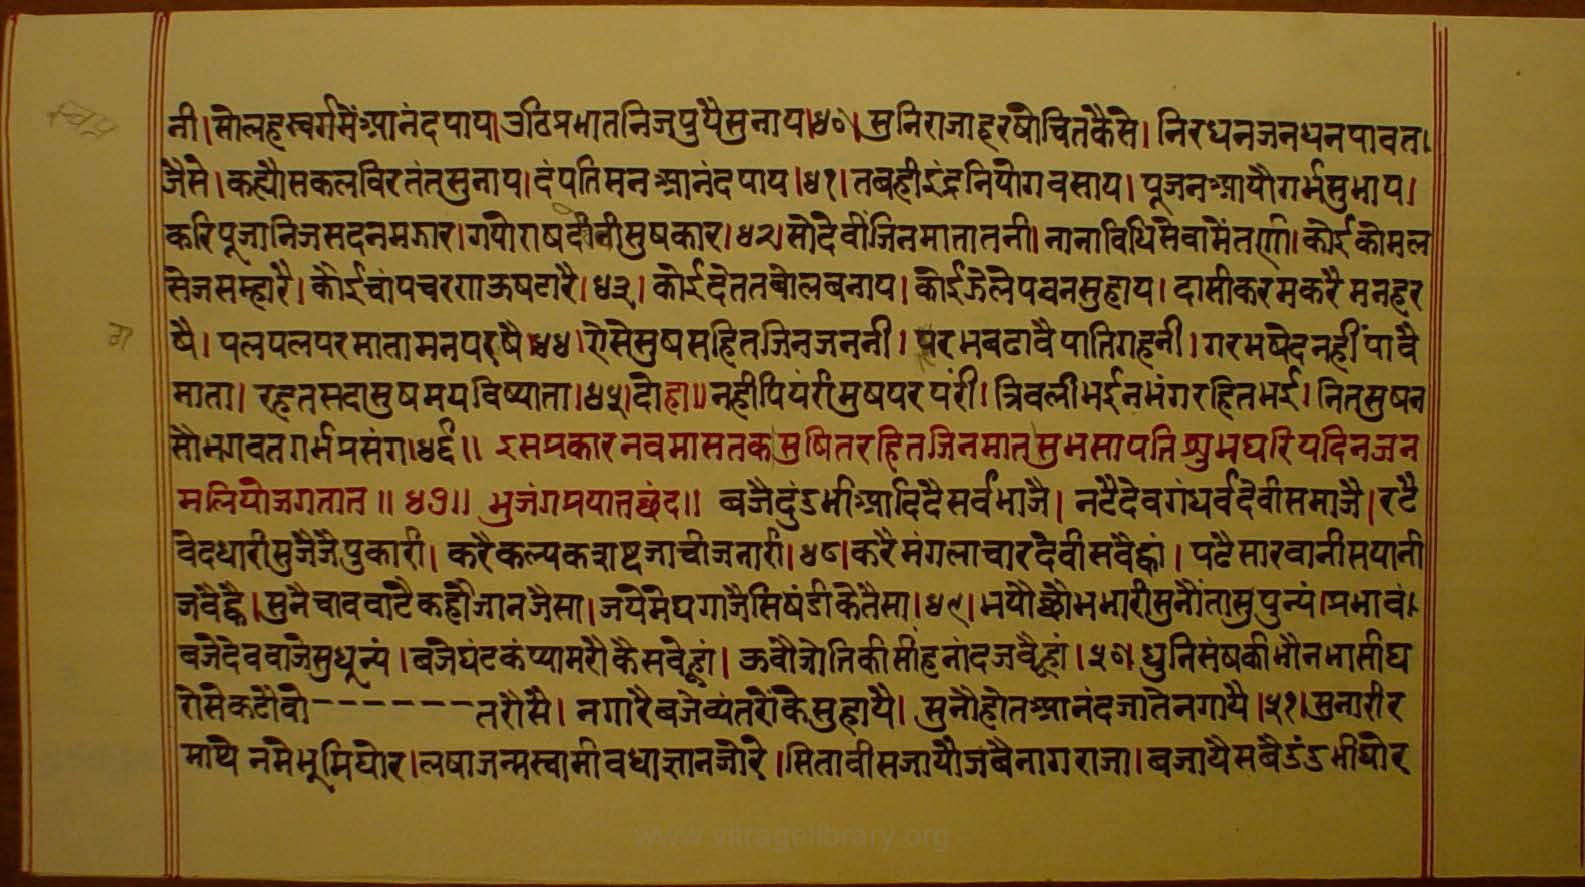 नी।सोलहस्वर्गमेंआनंदपाय।उठिप्रभातनिजपुयैसुनाय।४०।मुनिराजाहरषोचितकैसे।निरधनजनधनपावत।
जैसे।कह्यौसकलविरतंतसुनाय।दंपतिमनआनंदपाय।४१।तबहीइंद्रनियोगवसाय।पूजनआयौगर्भसुभाय।
करिपूजानिजसदनमझार।गयोराषदेवीसुषकार।४२।सोदेवींजिनमातातनी।नानाविधिसेवामें।कोईकोमल
सेजसम्हारै।कोईचांपचरणऊषटारै।४३।कोईदेततबोलबनाय।कोईझेलेपवनसुहाय।दासीकरमकरैमनहर
षै।पलपलपरमातामनपरषै।४४।ऐसेसुषसहितजिनजननी।परमबढावैपातिगहनी।गरभषेदनहींपावै
माता।रहतसदासुषमयविष्याता।४५।दोहा॥नहीपियंरीमुषपरपंरी।त्रिवलीभईनभंगरहितभई।नितसुषन
सौभगवतगर्भप्रसंग।४६॥इसप्रकारनवमासतकसुषितरहितजिनमातसुभसापतिशुभघरियदिनजन
मलियोजगतात॥४७॥भुजंगप्रयातछंद॥बजैदुंडभीआदिदैसर्वभाजै।नटैदेवगंधर्वदेवीसमाजै।रटै
वेदधारीसुजैजैपुकारी।करैकल्पकजनारी।४८।करैमंगलाचारदेवीसवैह्वां।पढैसारवानीसयानी
जवैह्वै।सुनैचाववाटैकहौजानजैसा।जयेमेघगाजैसिषंडीकेतैसा।४९।भयौछोभभारीसुनौंतासुपुन्यं।प्रभावं।
बजेदेववाजेसुधून्यं।बजेघंटकंप्यामरौकैसवेह्वां।ऊवौजोतिकीसींहनांदजवैह्वां।५०।धुनिसंषकीभौनभासीघ
रोसेकटौवो------तरौसै।नगारैबजेव्यंतरोंकेसुहायै।सुनौहोतआनंदजातेनगायै।५१।सुनारीर
माथे नमेभूमिघोर।लषाजन्मस्वामीवधाज्ञानजोरे।सितावीसजायौजबैनागराजा।बजायैसबैडंडभीघोर